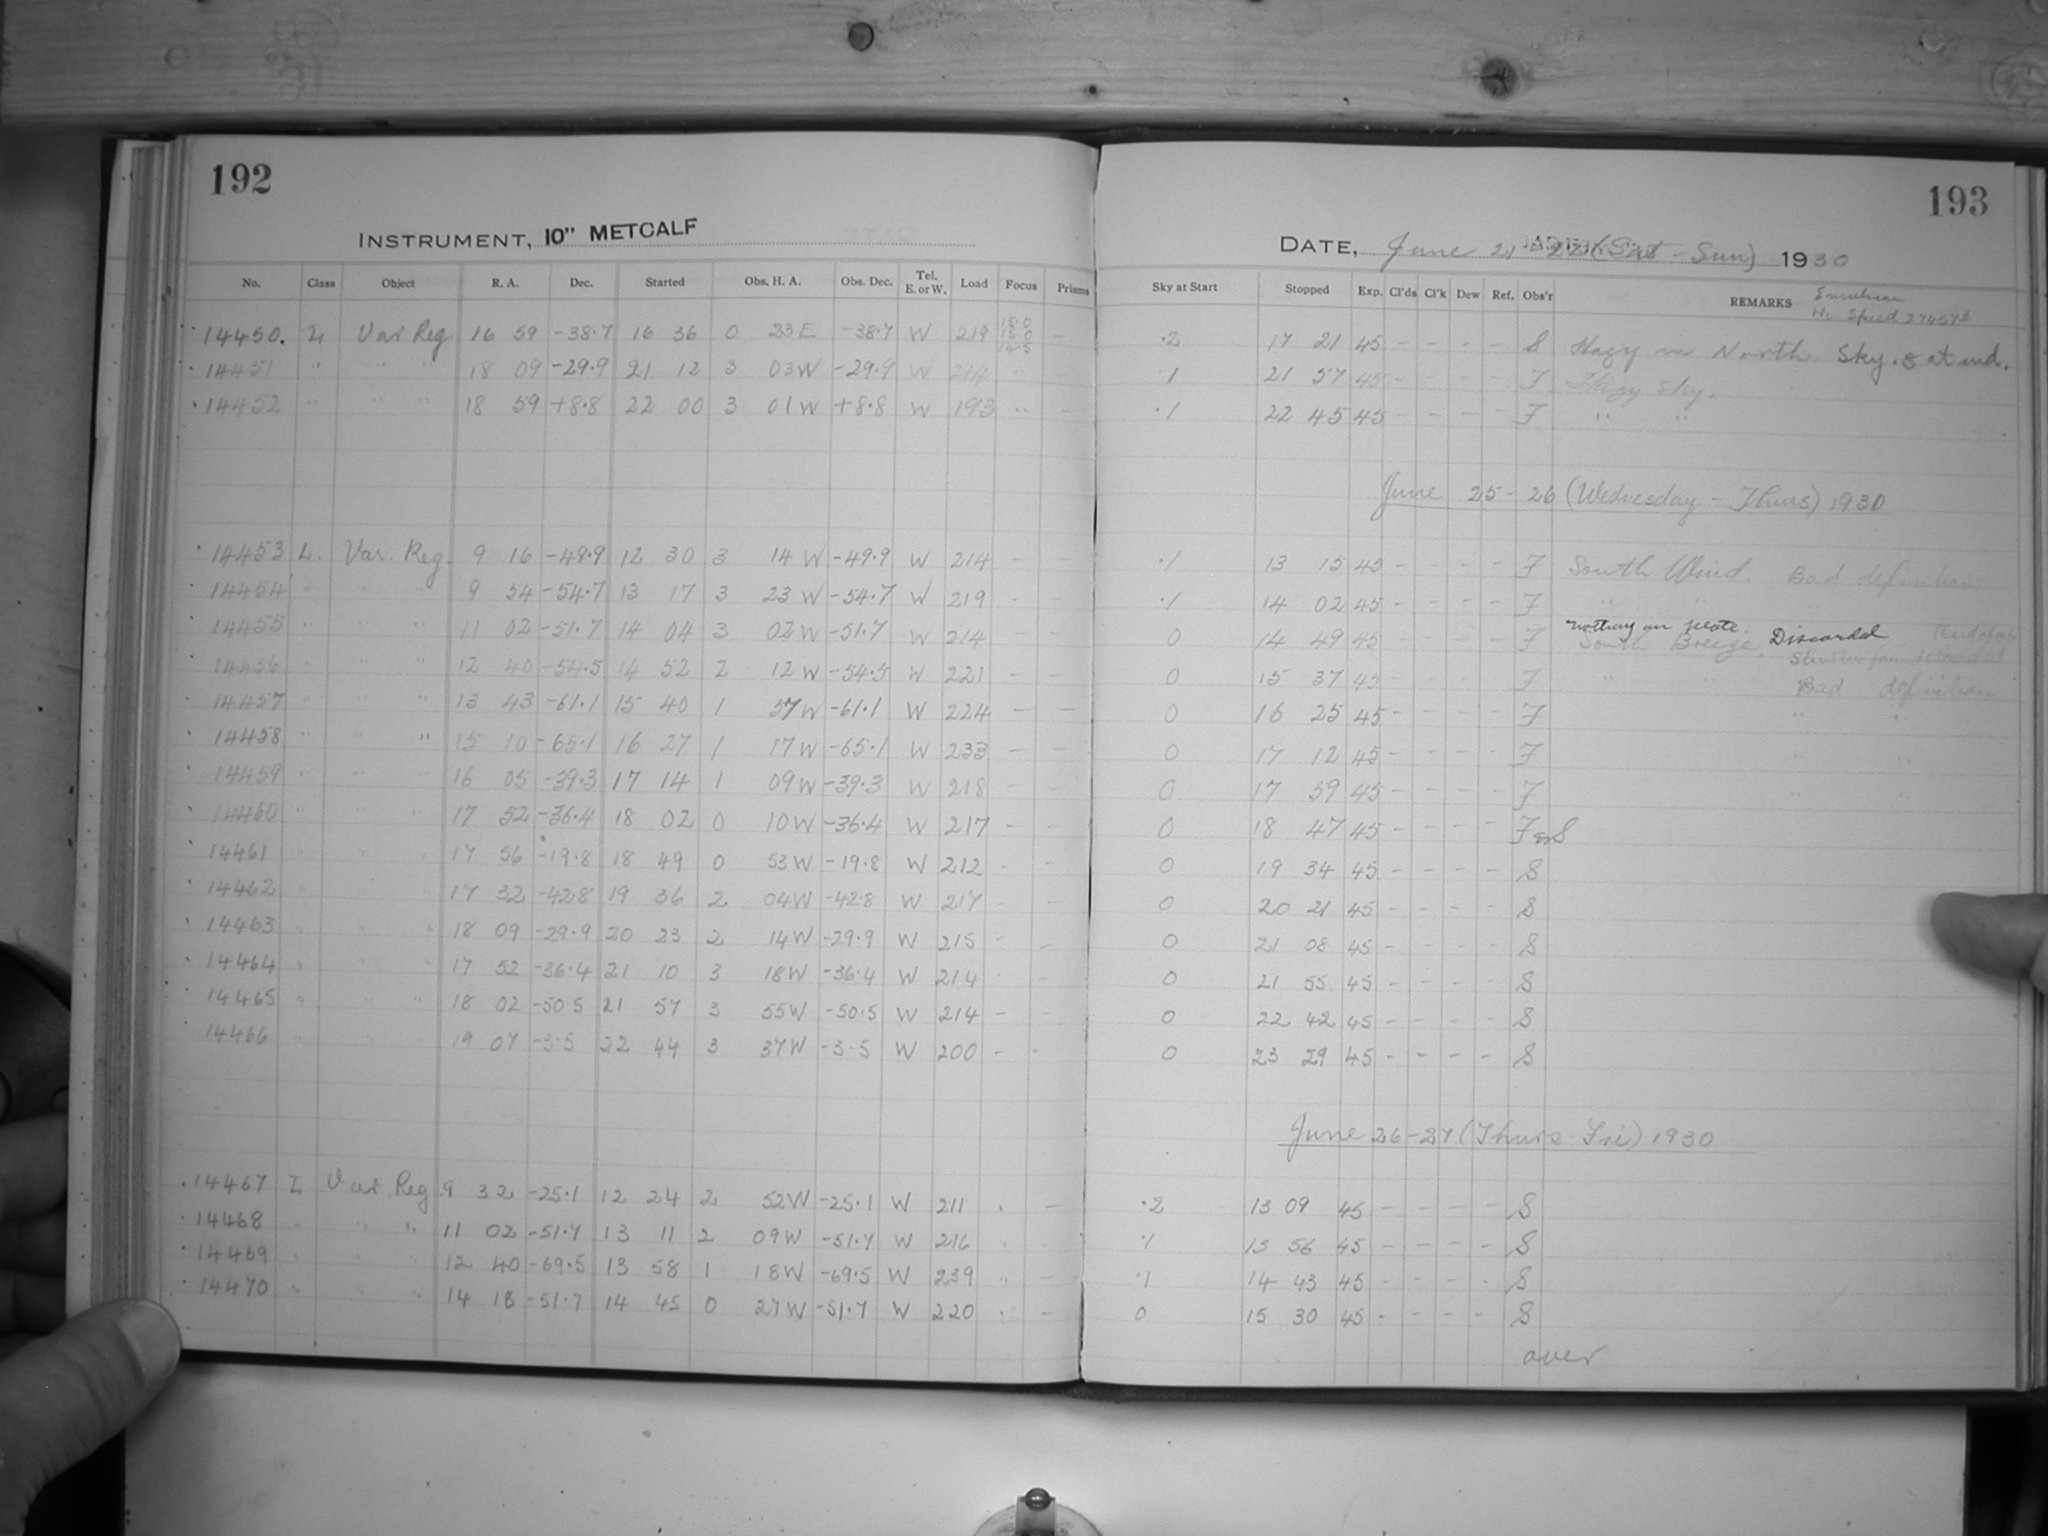 192
INSTRUMENT, 10" METCALF
No. Class Object R. A. Dec. Started Obs. H. A. Obs. Dec. Tel. E. or W. Load Focus Prisms
14450. L Var Reg 16 59 -38.7 16 36 0 23 E -38.7 W 219 -
14451 " " " 18 09 -29.9 21 12 3 03 W -29.9 W 214 " -
14452 " " " 18 59 +8.8 22 00 3 01 W +8.8 W 193 " -
14453 L. Var. Reg. 9 16 -49.9 12 30 3 14 W -49.9 W 214 - -
14454 " " " 9 54 -54.7 13 17 3 23 W -54.7 W 219 - -
14455 " " " 11 02 -51.7 14 04 3 02 W -51.7 W 214 - -
14456 " " " 12 40 -54.5 14 52 2 12 W -54.5 W 221 - -
14457 " " " 13 43 -61.1 15 40 1 57 W -61.1 W 224 - -
14458 " " " 15 10 -65.1 16 27 1 17 W -65.1 W 233 - -
14459 " " " 16 05 -39.3 17 14 1 09 W -39.3 W 218 - -
14460 " " " 17 52 -36.4 18 02 0 10 W -36.4 W 217 - -
14461 " " " 17 56 -19.8 18 49 0 53 W -19.8 W 212 - -
14462 " " " 17 32 -42.8 19 36 2 04 W -42.8 W 217 - -
14463 " " " 18 09 -29.9 20 23 2 14 W -29.9 W 215 - -
14464 " " " 17 52 -36.4 21 10 3 18 W -36.4 W 214 - -
14465 " " " 18 02 -50.5 21 57 3 55 W -50.5 W 214 - -
14466 " " " 19 07 -3.5 22 44 3 37 W -3.5 W 200 - -
14467 L Var. Reg 9 32 -25.1 12 24 2 52 W -25.1 W 211 -
14468 " " " 11 02 -51.7 13 11 2 09 W -51.7 W 216 -
14469 " " " 12 40 -69.5 13 58 1 18 W -69.5 W 239 " -
14470 " " " 14 18 -51.7 14 45 0 27 W -51.7 W 220 " -
193
DATE, June 21-22 (Sat - Sun) 1930
Sky at Start Stopped Exp. Cl'ds Cl'k Dew Ref. Obs'r REMARKS Emulsion
Hi Speed
.2 17 21 45 - - - - S Hazy in North. Sky .8 at end.
.1 21 57 45 - - - - F Hazy sky.
.1 22 45 45 - - - - F " "
June 25-26 (Wednesday - Thurs) 1930
.1 13 15 45 - - - - F South Wind. Bad definition
.1 14 02 45 - - - - F " "
nothing on plate.
0 14 49 45 - - - - F South Breeze. Discarded
0 15 37 45 - - - - F " " Bad definition
0 16 25 45 - - - - F " "
0 17 12 45 - - - - F " "
0 17 59 45 - - - - F " "
0 18 47 45 - - - - F S
0 19 34 45 - - - - S
0 20 21 45 - - - - S
0 21 08 45 - - - - S
0 21 55 45 - - - - S
0 22 42 45 - - - - S
0 23 29 45 - - - - S
June 26-27 (Thurs - Fri) 1930
.2 13 09 45 - - - - S
.1 13 56 45 - - - - S
.1 14 43 45 - - - - S
0 15 30 45 - - - - S
over